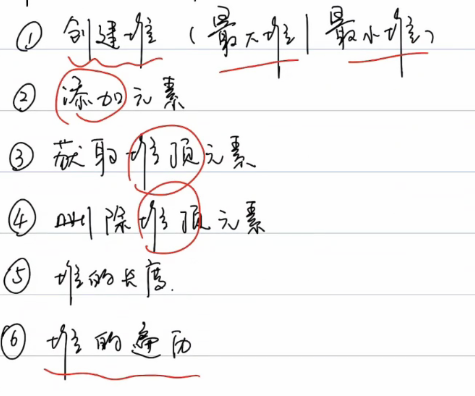 ① 创建堆 (最大堆|最小堆)
② 添加元素
③ 获取堆顶元素
④ 删除堆顶元素
⑤ 堆的长度.
⑥ 堆的遍历